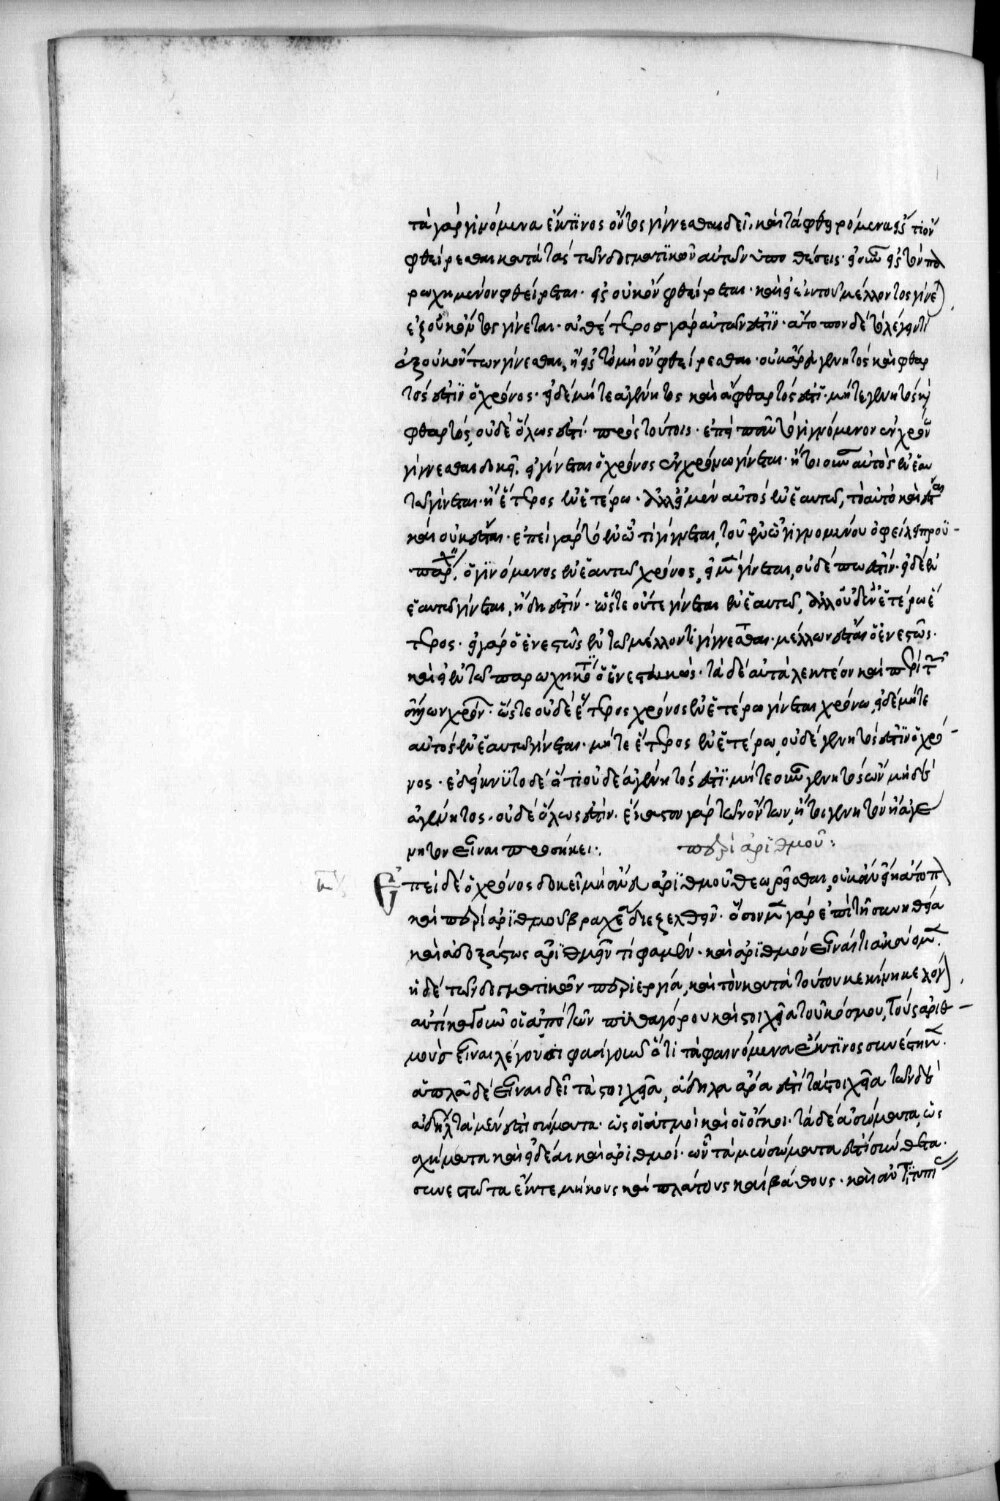 τὰ γὰρ γινόμενα ἔκ τινος ὄντος γίνεσθαι δεῖ, καὶ τὰ φθειρόμενα εἰς τὶ ὂν
φθείρεσθαι κατὰ τὰς τῶν δογματικῶν αὐτῶν ὑποθέσεις· εἰ οὖν εἰς τὸν πα
ρωχημένον φθείρεται· εἰς οὐκ ὂν φθείρεται· καὶ εἰ ἐκ τοῦ μέλλοντος γίνε
ἐξ οὐκ ὄντος γίνεται· οὐθέτερος γὰρ αὐτῶν ἐστίν· ἄτοπον δὲ τὸ λέγειν τι
ἐξ οὐκ ὄντων γίνεσθαι, ἢ εἰς τὸ μὴ ὂν φθείρεσθαι· οὐκ ἄρα γεννητὸς καὶ φθαρ
τός ἐστιν ὁ χρόνος· εἰ δὲ μήτε ἀγέννητος καὶ ἄφθαρτός ἐστι· μήτε γεννητὸς καὶ
φθαρτός, οὐδὲ ὅλως ἐστί· πρὸς τούτοις· ἐπεὶ πᾶν τὸ γιγνόμενον ἐν χρόνῳ
γίγνεσθαι δοκεῖ, εἰ γίνεται ὁ χρόνος ἐν χρόνῳ γίνεται· ἤτοι οὖν αὐτὸς ἐν ἑαυ
τῷ γίνεται· ἢ ἕτερος ἐν ἑτέρῳ· ἀλλ' εἰ μὲν αὐτὸς ἐν ἑαυτῷ, τὸ αὐτὸ καὶ ἔσται
καὶ οὐκ ἔσται· ἐπεὶ γὰρ τὸ ἐν ᾧ τι γίγνεται, τοῦ ἐν ᾧ γιγνομένου ὀφείλει προϋ-
πάρχειν, ὁ γινόμενος ἐν ἑαυτῷ χρόνος, εἰ μὲν γίνεται, οὐδέπω ἐστίν· εἰ δὲ ἐν
ἑαυτῷ γίνεται, ἤδη ἐστίν· ὥστε οὔτε γίνεται ἐν ἑαυτῷ, ἀλλ' οὐδ' ἐν ἑτέρῳ ἕ
τερος· εἰ γὰρ ὁ ἐνεστὼς ἐν τῷ μέλλοντι γίγνεσθαι· μέλλων ἔσται ὁ ἐνεστώς·
καὶ εἰ ἐν τῷ παρωχηκότι ὁ ἐνεστηκώς· τὰ δὲ αὐτὰ λεκτέον καὶ περὶ τῶν
ἄλλων χρόνων· ὥστε οὐδὲ ἕτερος χρόνος ἐν ἑτέρῳ γίνεται χρόνῳ, εἰ δὲ μήτε
αὐτὸς ἐν ἑαυτῷ γίνεται· μήτε ἕτερος ἐν ἑτέρῳ, οὐδὲ γεννητός ἐστιν ὁ χρό-
νος· ἐδείκνυτο δὲ ὅτι οὐδὲ ἀγέννητός ἐστι· μήτε οὖν γεννητὸς ὢν μηδὲ
ἀγέννητος· οὐδὲ ὅλως ἐστίν· ἕκαστον γὰρ τῶν ὄντων, ἤτοι γεννητὸν ἢ ἀγέν
νητον εἶναι προσήκει:
περὶ ἀριθμοῦ:
Ἐπεὶ δὲ ὁ χρόνος δοκεῖ μὴ ἄνευ ἀριθμοῦ θεωρεῖσθαι, οὐκ ἂν εἴη ἄτοπον
καὶ περὶ ἀριθμοῦ βραχέα διεξελθεῖν· ὅσον μὲν γὰρ ἐπὶ τῇ συνηθείᾳ
καὶ ἀδοξάστως ἀριθμεῖν τί φαμεν· καὶ ἀριθμὸν εἶναί τι ἀκούομεν·
ἡ δὲ τῶν δογματικῶν περιεργία, καὶ τὸν κατὰ τούτου κεκίνηκε λόγον
αὐτίκα γοῦν οἱ ἀπὸ τῶν πυθαγόρου καὶ στοιχεῖα τοῦ κόσμου, τοὺς ἀριθ-
μοὺς εἶναι λέγουσι φασὶ γοῦν ὅτι τὰ φαινόμενα ἔκ τινος συνέστηκεν·
ἁπλᾶ δὲ εἶναι δεῖ τὰ στοιχεῖα, ἄδηλα ἄρα ἐστὶ τὰ στοιχεῖα τῶν δὲ
ἀδήλων τὰ μέν ἐστι σώματα· ὡς οἱ ἀτμοὶ καὶ οἱ ὄγκοι· τὰ δὲ ἀσώματα, ὡς
σχήματα καὶ ἰδέαι καὶ ἀριθμοί· ὧν τὰ μὲν σώματά ἐστι σύνθετα·
συνεστῶτα ἔκ τε μήκους καὶ πλάτους καὶ βάθους· καὶ ἀντιτυπί